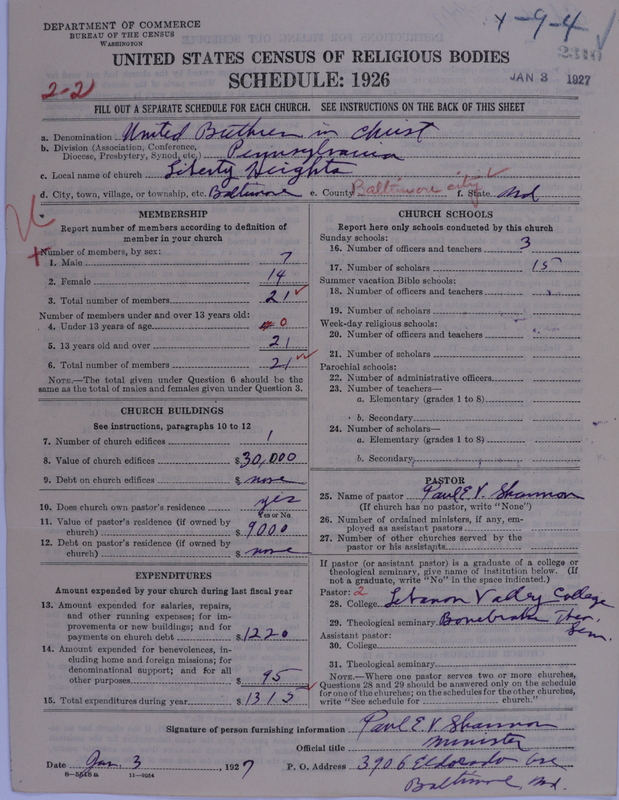 DEPARTMENT OF COMMERCE
BUREAU OF THE CENSUS
WASHINGTON
x-9-4
UNITED STATES CENSUS OF RELIGIOUS BODIES
SCHEDULE: 1926
JAN 3 1927
2-2
FILL OUT A SEPARATE SCHEDULE FOR EACH CHURCH. SEE INSTRUCTIONS ON THE BACK OF THIS SHEET
a. Denomination United Brethren in Christ
b. Division (Association, Conference, Diocese, Presbytery, Synod, etc.) Pennsylvania
c. Local name of church Liberty Heights
d. City, town, village, or township, etc. Baltimore e. County Baltimore city f. State Md
MEMBERSHIP
Report number of members according to definition of
member in your church
Number of members, by sex:
1. Male 7
2. Female 14
3. Total number of members 21
Number of members under and over 13 years old:
4. Under 13 years of age 0
5. 13 years old and over 21
6. Total number of members 21
NOTE.—The total given under Question 6 should be the
same as the total of males and females given under Question 3.
CHURCH BUILDINGS
See instructions, paragraphs 10 to 12
7. Number of church edifices 1
8. Value of church edifices $30,000
9. Debt on church edifices $ none
10. Does church own pastor's residence yes
Yes or No
11. Value of pastor's residence (if owned by
church) $ 9000
12. Debt on pastor's residence (if owned by
church) $ none
EXPENDITURES
Amount expended by your church during last fiscal year
13. Amount expended for salaries, repairs,
and other running expenses; for im-
provements or new buildings; and for
payments on church debt $ 1220
14. Amount expended for benevolences, in-
cluding home and foreign missions; for
denominational support; and for all
other purposes $ 95
15. Total expenditures during year $ 1315
CHURCH SCHOOLS
Report here only schools conducted by this church
Sunday schools:
16. Number of officers and teachers 3
17. Number of scholars 15
Summer vacation Bible schools:
18. Number of officers and teachers
19. Number of scholars
Week-day religious schools:
20. Number of officers and teachers
21. Number of scholars
Parochial schools:
22. Number of administrative officers
23. Number of teachers—
a. Elementary (grades 1 to 8)
b. Secondary
24. Number of scholars—
a. Elementary (grades 1 to 8)
b. Secondary
PASTOR
25. Name of pastor Paul E. V. Shannon
(If church has no pastor, write "None")
26. Number of ordained ministers, if any, em-
ployed as assistant pastors
27. Number of other churches served by the
pastor or his assistants
If pastor (or assistant pastor) is a graduate of a college or
theological seminary, give name of institution below. (If
not a graduate, write "No" in the space indicated.)
Pastor: 2
28. College Lebanon Valley College
29. Theological seminary Bonebrake Theo. Sem.
Assistant pastor:
30. College
31. Theological seminary
NOTE.—Where one pastor serves two or more churches,
Questions 28 and 29 should be answered only on the schedule
for one of the churches; on the schedules for the other churches,
write "See schedule for church."
Signature of person furnishing information Paul E V Shannon
Official title Minister
Date Jan. 3, 1927 P. O. Address 3906 Eldorado Ave
8—5548a 11—9264 Baltimore, Md.